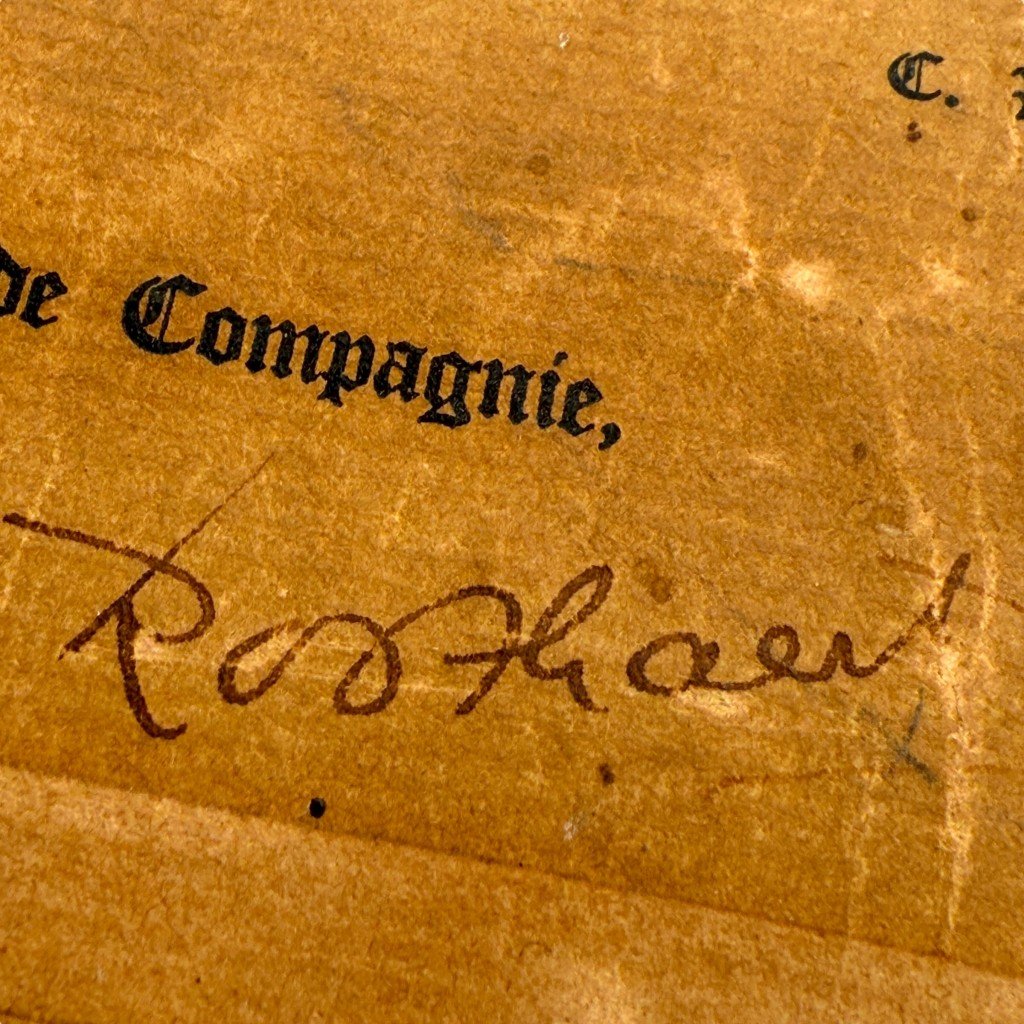 C.
de Compagnie,
Rosthaert